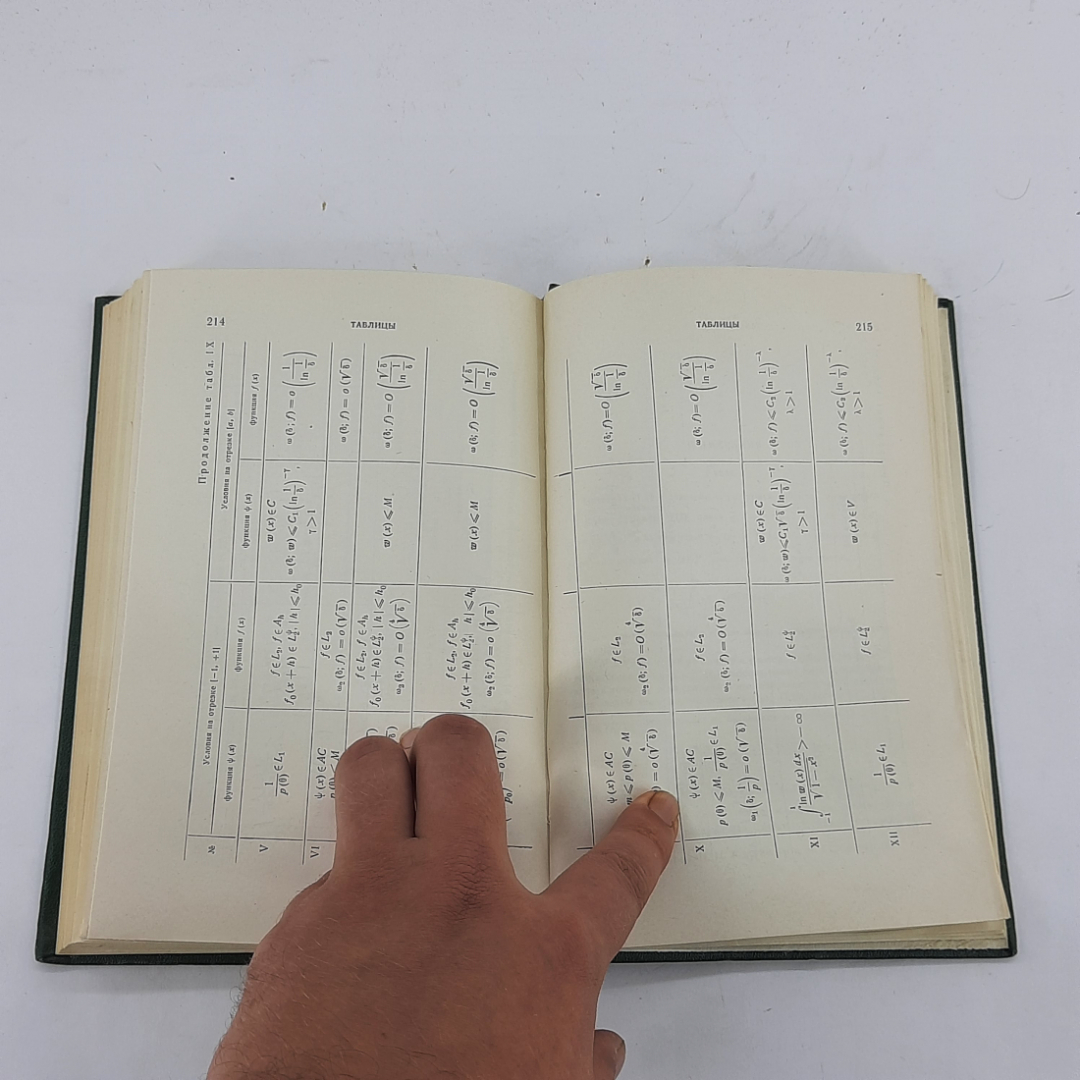 214
ТАБЛИЦЫ
Продолжение табл. IX
№
Условия на отрезке [−1, +1]
Условия на отрезке [a, b]
функция ψ (x)
функция f (x)
функция ψ (x)
функция f (x)
V
1/p (θ) ∈ L₁
f ∈ L₂, f ∈ Aₕ
f₀ (x + h) ∈ L₂^φ, |h| ⩽ h₀
ϖ (x) ∈ C
ω (δ; ϖ) ⩽ C₁ (ln 1/δ)^−γ,
γ > 1
ω (δ; f) = o (1/ln 1/δ)
VI
ψ (x) ∈ AC
f ∈ L₂
ω₂ (δ; f) = o (√δ)
ω (δ; f) = o (√δ)
f ∈ L₂, f ∈ Aₕ
f₀ (x + h) ∈ L₂^φ, |h| ⩽ h₀
ω₂ (δ; f) = O (⁴√δ)
ϖ (x) ⩽ M.
ω (δ; f) = O (√δ/ln 1/δ)
f ∈ L₂, f ∈ Aₕ
f₀ (x + h) ∈ L₂^φ, |h| ⩽ h₀
ω₂ (δ; f) = o (⁴√δ)
ϖ (x) ⩽ M
ω (δ; f) = O (√δ/ln 1/δ)
ТАБЛИЦЫ
215
ψ (x) ∈ AC
m < p (θ) ⩽ M
= o (⁴√δ)
f ∈ L₂
ω₂ (δ; f) = O (√δ)
ω (δ; f) = O (√δ/ln 1/δ)
X
ψ (x) ∈ AC
p (θ) ⩽ M, 1/p (θ) ∈ L₁
ω₁ (δ; 1/p) = o (√δ)
f ∈ L₂
ω₂ (δ; f) = O (√δ)
ω (δ; f) = O (√δ/ln 1/δ)
XI
∫₋₁¹ ln ϖ (x) dx/√1 − x² > − ∞
f ∈ L₂^ψ
ϖ (x) ∈ C
ω (δ; ϖ) ⩽ C₁√δ (ln 1/δ)^−γ,
γ > 1
ω (δ; f) ⩽ C₂ (ln 1/δ)^−λ,
λ > 1
XII
1/p (θ) ∈ L₁
f ∈ L₂^ψ
ϖ (x) ∈ V
ω (δ; f) ⩽ C₂ (ln 1/δ)^−λ,
λ > 1